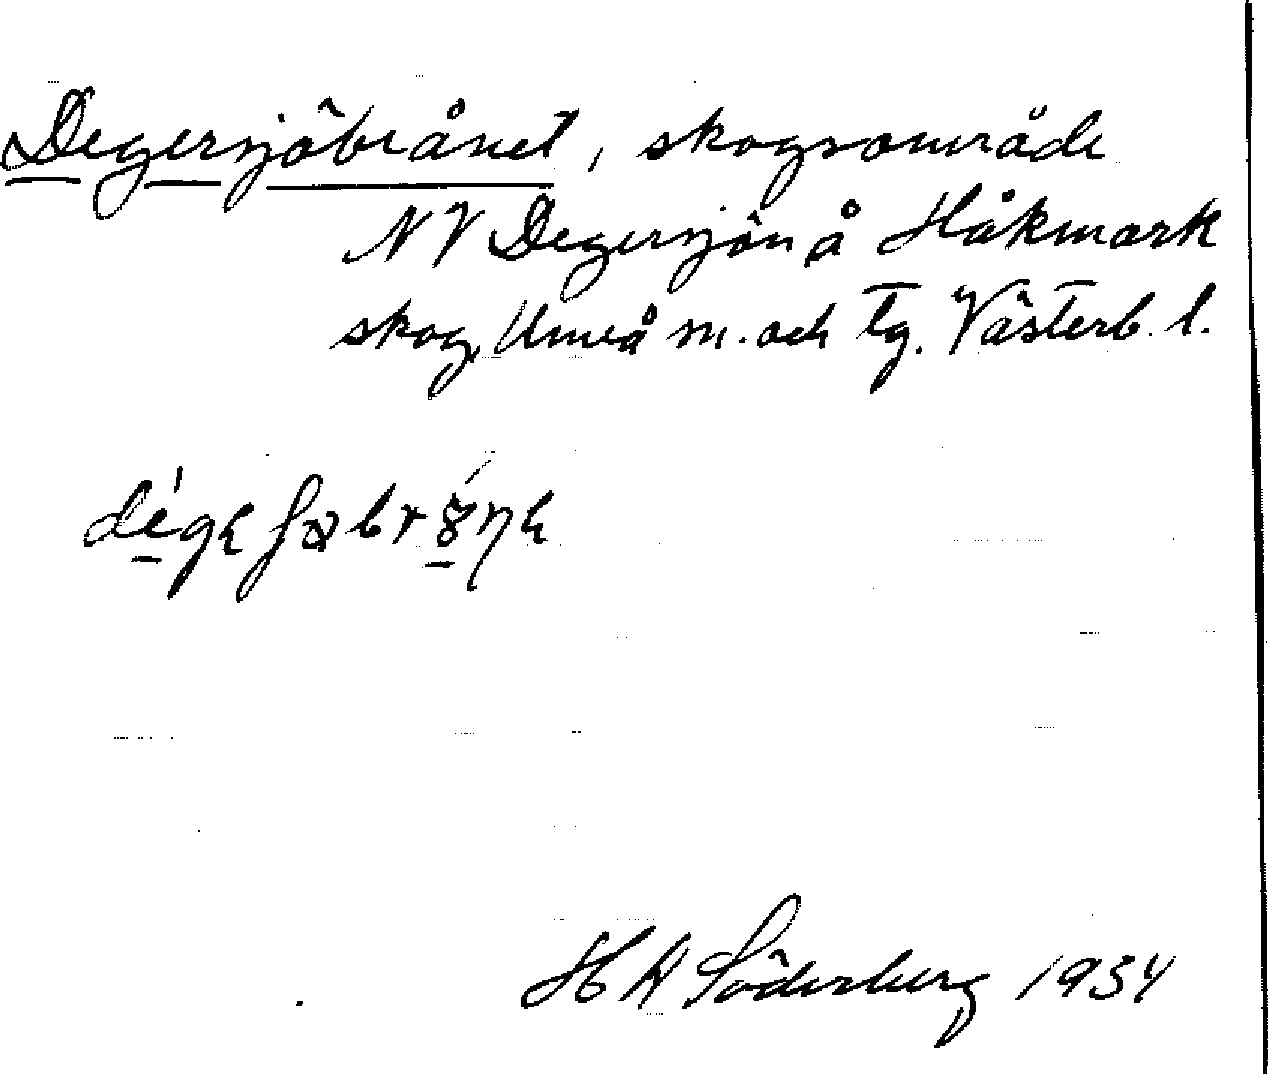 Degersjöbrånet, skogsområde
NV Degersjön å Håkmark
skog, Umeå sn. och tg. Västerb. l.
H A Söderberg 1934